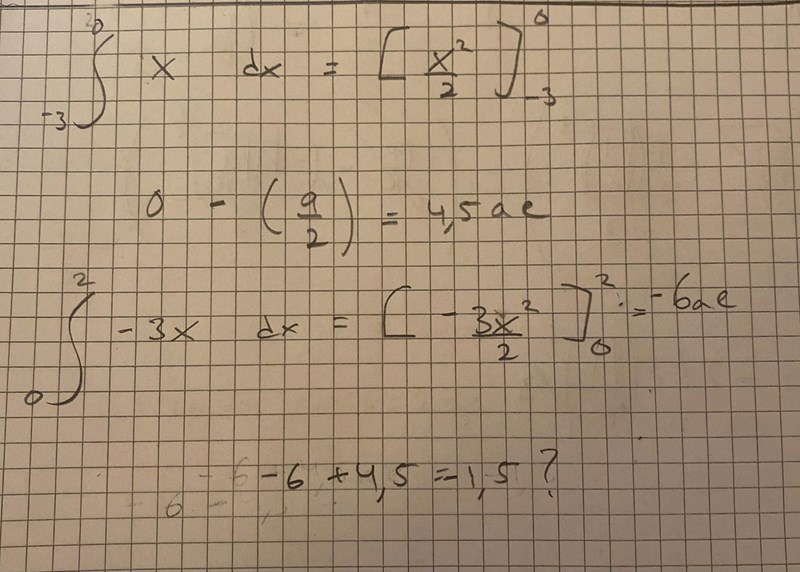 ∫_{-3}^{0} x dx = [x²/2]_{-3}^{0}
0 - (9/2) = 4,5 ae
∫_{0}^{2} -3x dx = [-3x²/2]_{0}^{2} = -6ae
-6 +4,5 = -1,5 ?